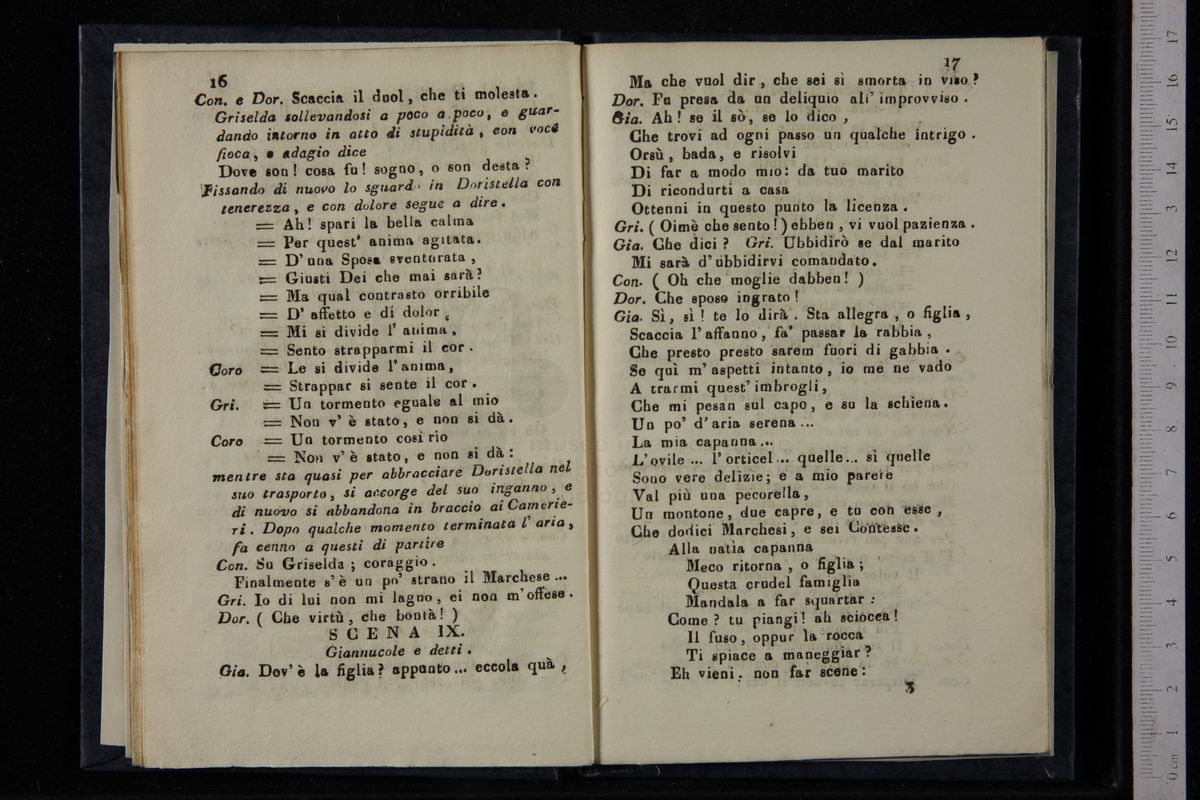 16
Con. e Dor. Scaccia il duol, che ti molesta.
Griselda sollevandosi a poco a poco, e guar-
dando intorno in atto di stupidità, con voce
fioca, e adagio dice
Dove son! cosa fu! sogno, o son desta?
Fissando di nuovo lo sguardo in Doristella con
tenerezza, e con dolore segue a dire.
= Ah! spari la bella calma
= Per quest' anima agitata.
= D'una Sposa sventurata,
= Giusti Dei che mai sarà?
= Ma qual contrasto orribile
= D' affetto e di dolor,
= Mi si divide l' anima,
= Sento strapparmi il cor.
Coro = Le si divide l'anima,
= Strappar si sente il cor.
Gri. = Un tormento eguale al mio
= Non v' è stato, e non si dà.
Coro = Un tormento così rio
= Non v' è stato, e non si dà:
mentre sta quasi per abbracciare Doristella nel
suo trasporto, si accorge del suo inganno, e
di nuovo si abbandona in braccio ai Camerie-
ri. Dopo qualche momento terminata l' aria,
fa cenno a questi di partire
Con. Su Griselda; coraggio.
Finalmente s'è un po' strano il Marchese...
Gri. Io di lui non mi lagno, ei non m'offese.
Dor. ( Che virtù, che bontà! )
SCENA IX.
Giannucole e detti.
Gia. Dov' è la figlia? appunto... eccola quà,
17
Ma che vuol dir, che sei sì smorta in viso?
Dor. Fu presa da un deliquio all' improvviso.
Gia. Ah! se il sò, se lo dico,
Che trovi ad ogni passo un qualche intrigo.
Orsù, bada, e risolvi
Di far a modo mio: da tuo marito
Di ricondurti a casa
Ottenni in questo punto la licenza.
Gri. ( Oimè che sento! ) ebben, vi vuol pazienza.
Gia. Che dici? Gri. Ubbidirò se dal marito
Mi sarà d'ubbidirvi comandato.
Con. ( Oh che moglie dabben! )
Dor. Che sposo ingrato!
Gia. Sì, sì! te lo dirà. Sta allegra, o figlia,
Scaccia l'affanno, fa' passar la rabbia,
Che presto presto sarem fuori di gabbia.
Se quì m'aspetti intanto, io me ne vado
A trarmi quest' imbrogli,
Che mi pesan sul capo, e su la schiena.
Un po' d'aria serena...
La mia capanna...
L'ovile... l'orticel... quelle... sì quelle
Sono vere delizie; e a mio parere
Val più una pecorella,
Un montone, due capre, e tu con esse,
Che dodici Marchesi, e sei Contesse.
Alla natìa capanna
Meco ritorna, o figlia;
Questa crudel famiglia
Mandala a far squartar:
Come? tu piangi! ah sciocca!
Il fuso, oppur la rocca
Ti spiace a maneggiar?
Eh vieni, non far scene:
3
0 cm 1 2 3 4 5 6 7 8 9 10 11 12 13 14 15 16 17